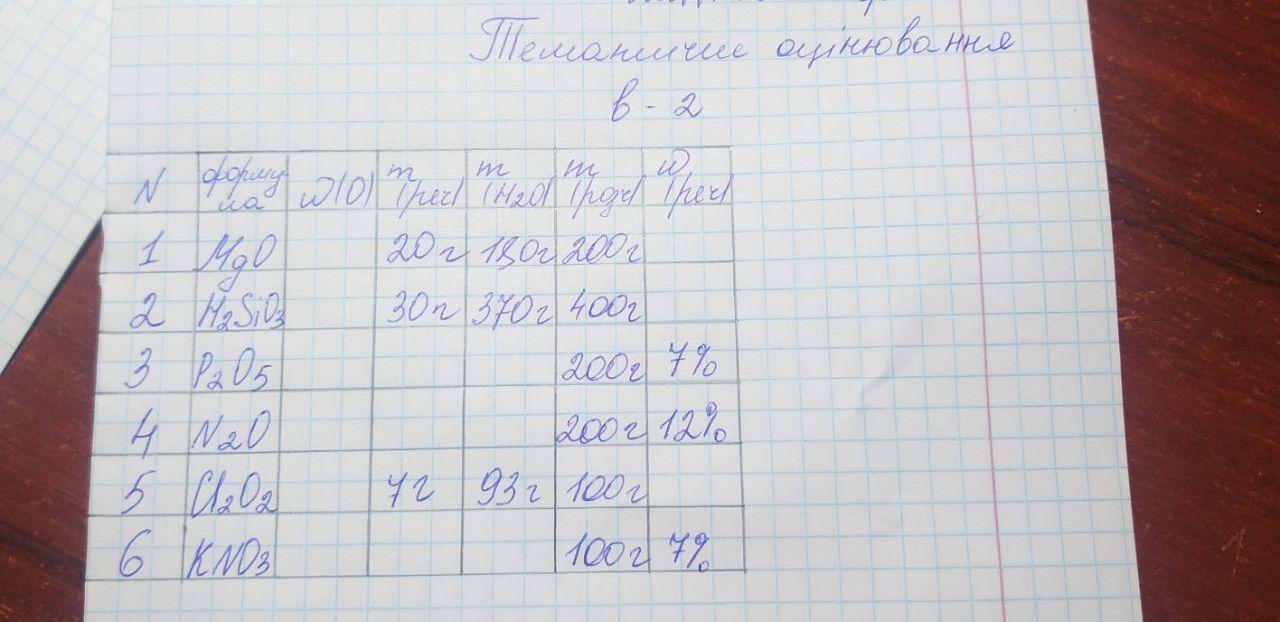 Тематичне оцінювання
в - 2
N форму ла ω(O) m (реч) m (H₂O) m (розч) ω (реч)
1 MgO 20г 180г 200г
2 H₂SiO₃ 30г 370г 400г
3 P₂O₅ 200г 7%
4 N₂O 200г 12%
5 Cl₂O₂ 7г 93г 100г
6 KNO₃ 100г 7%